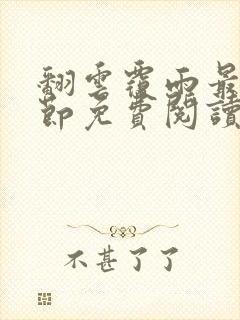 翻雲覆雨最
節免費閱讀
不甚了了